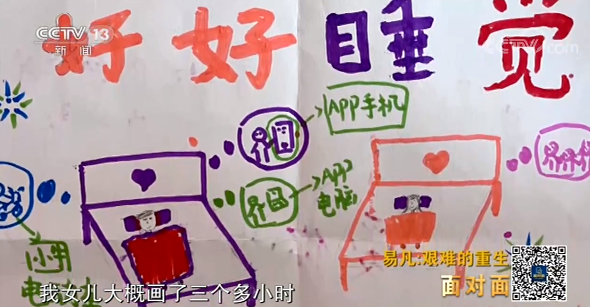 CCTV 13
新闻
CCTV.com
好好睡觉
APP手机
APP
电脑
小明
电
易凡:艰难的重生
面对面
我女儿大概画了三个多小时